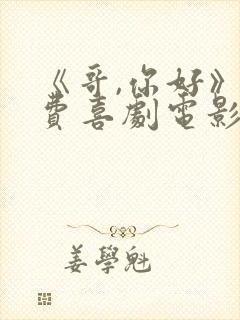 《哥,你好》
費喜劇電影
姜學魁